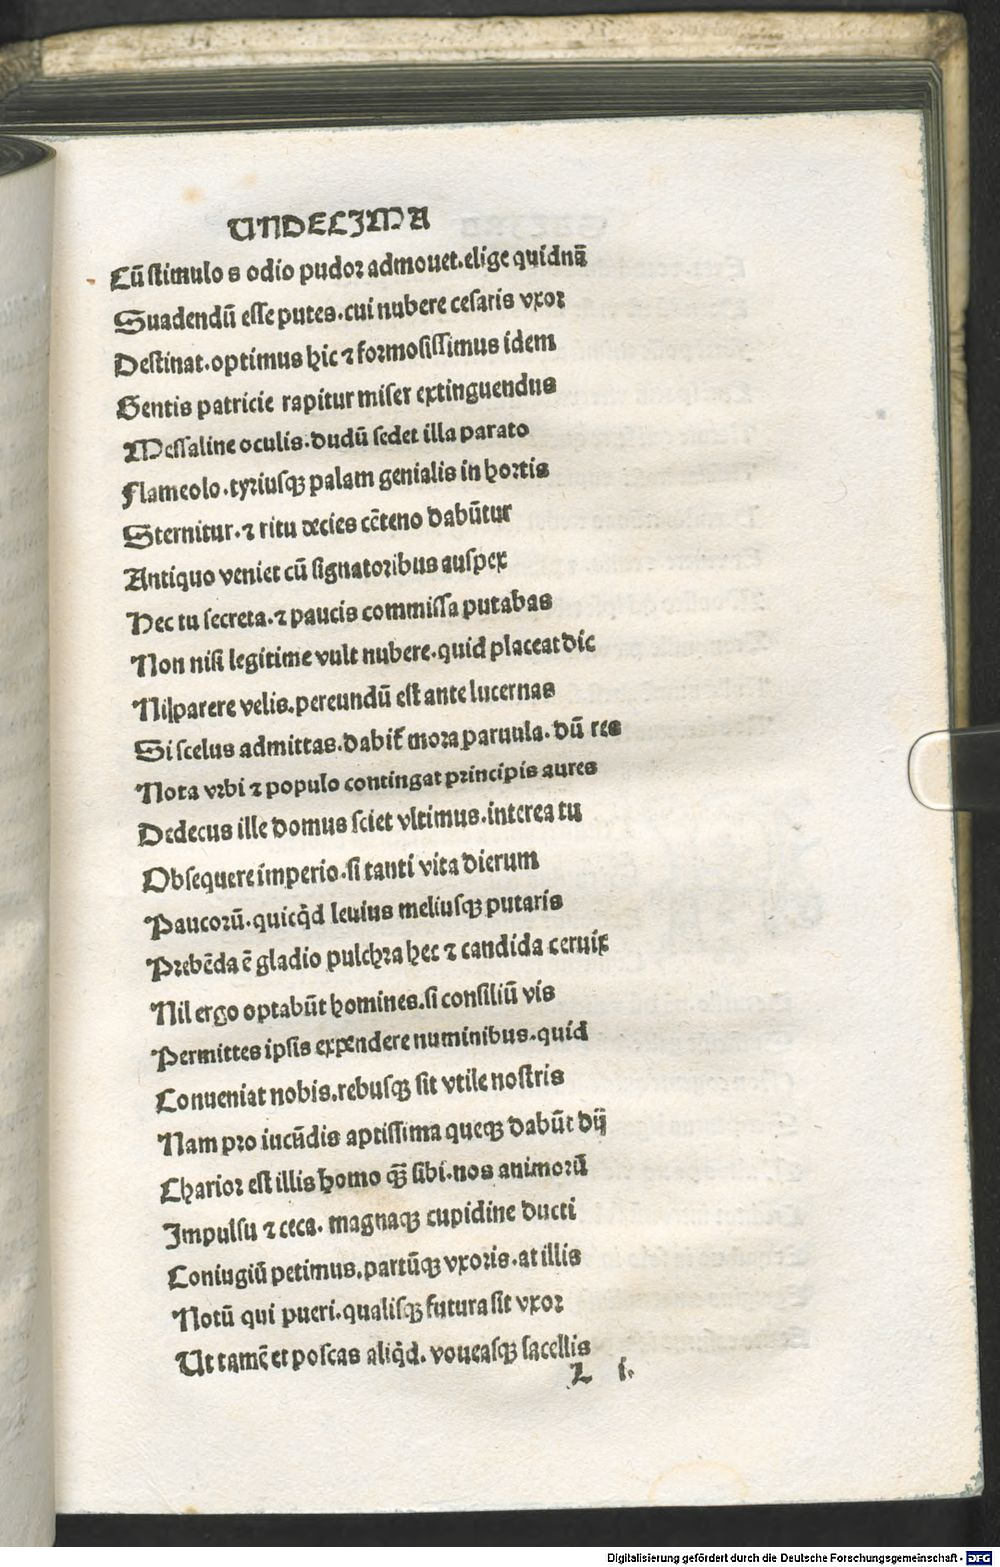 UNDECIMA
Cū stimulo s odio pudor admouet.elige quidnā
Suadendū esse putes.cui nubere cesaris vxor
Destinat.optimus hic ⁊ formosissimus idem
Gentis patricie rapitur miser extinguendus
Messaline oculis.dudū sedet illa parato
Flameolo.tyriusqꝫ palam genialis in hortis
Sternitur.⁊ ritu decies cēteno dabūtur
Antiquo veniet cū signatoribus auspex
Hec tu secreta.⁊ paucis commissa putabas
Non nisi legitime vult nubere.quid placeat dic
Nilparere velis.pereundū est ante lucernas
Si scelus admittas.dabit᷑ mora paruula.dū res
Nota vrbi ⁊ populo contingat principis aures
Dedecus ille domus sciet vltimus.interea tu
Obsequere imperio.si tanti vita dierum
Paucorū.quicq̇d leuius meliusqꝫ putaris
Prebēda ē gladio pulchra hec ⁊ candida ceruix
Nil ergo optabūt homines.si consiliū vis
Permittes ipsis expendere numinibus.quid
Conueniat nobis.rebusqꝫ sit vtile nostris
Nam pro iucūdis aptissima queqꝫ dabūt dij
Charior est illis homo qꝫ̄ sibi.nos animorū
Impulsu ⁊ ceca. magnaqꝫ cupidine ducti
Coniugiū petimus.partūqꝫ vxoris.at illis
Notū qui pueri.qualisqꝫ futura sit vxor
Ut tamē et poscas aliq̇d. voueasqꝫ sacellis
L i.
Digitalisierung gefördert durch die Deutsche Forschungsgemeinschaft - DFG